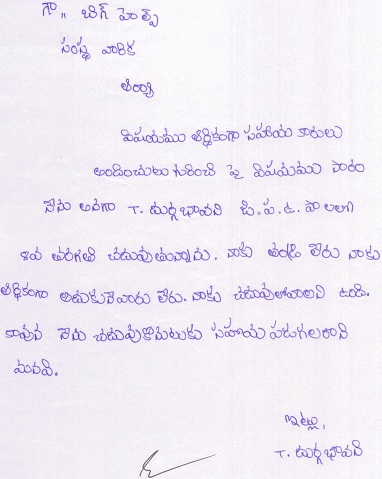 గా,, బిగ్ హెల్ప్
సంస్థ వారికి
ఆర్యా
విషయము ఆర్థికంగా సహాయ కారులు
అందించుట గురించి పై విషయము సారం
నేను అనగా T. దుర్గభావని
వ తరగతి చదువుతున్నాను. నాకు తండ్రి లేరు నాకు
ఆర్థికంగా ఆదుకునేవారు లేరు. నాకు చదువుకోవాలని ఉంది.
కావున నేను చదువుకొనుటకు సహాయ పడగలరాని
మనవి.
ఇట్లు,
T. దుర్గభావని